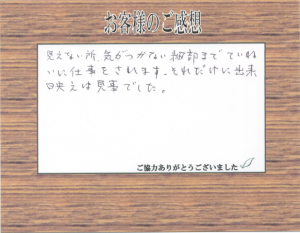 お客様のご感想
見えない所、気がつかない細部までていね
いに仕事をされます。それだけに出来
映えは見事でした。
ご協力ありがとうございました